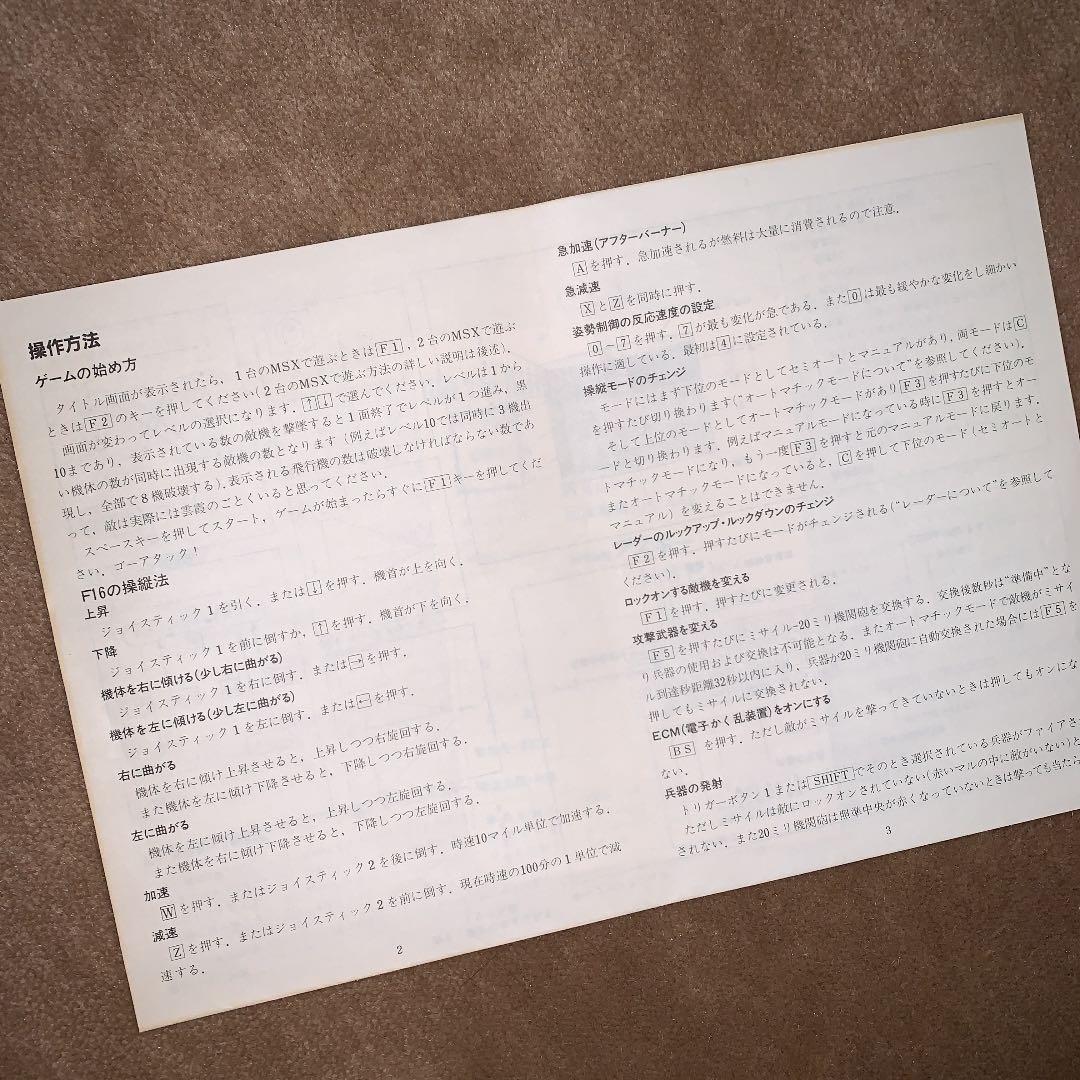 操作方法
ゲームの始め方
タイトル画面が表示されたら，1台のMSXで遊ぶときはF1，2台のMSXで遊ぶ
ときはF2のキーを押してください(2台のMSXで遊ぶ方法の詳しい説明は後述)．
画面が変わってレベルの選択になります．↑↓で選んでください．レベルは1から
10まであり，表示されている数の敵機を撃墜すると1面終了でレベルが1つ進み，黒
い機体の数が同時に出現する敵機の数となります(例えばレベル10では同時に3機出
現し，全部で8機破壊する)．表示される飛行機の数は破壊しなければならない数であ
って，敵は実際には雲霞のごとくいると思ってください．
スペースキーを押してスタート，ゲームが始まったらすぐにF1キーを押してくだ
さい．ゴーアタック！
F16の操縦法
上昇
ジョイスティック1を引く．または↓を押す．機首が上を向く．
下降
ジョイスティック1を前に倒すか，↑を押す．機首が下を向く．
機体を右に傾ける(少し右に曲がる)
ジョイスティック1を右に倒す．または→を押す．
機体を左に傾ける(少し左に曲がる)
ジョイスティック1を左に倒す．または←を押す．
右に曲がる
機体を右に傾け上昇させると，上昇しつつ右旋回する．
また機体を左に傾け下降させると，下降しつつ右旋回する．
左に曲がる
機体を左に傾け上昇させると，上昇しつつ左旋回する．
また機体を右に傾け下降させると，下降しつつ左旋回する．
加速
Wを押す．またはジョイスティック2を後に倒す．時速10マイル単位で加速する．
減速
Zを押す．またはジョイスティック2を前に倒す．現在時速の100分の1単位で減
速する．
2
急加速(アフターバーナー)
Aを押す．急加速されるが燃料は大量に消費されるので注意．
急減速
XとZを同時に押す．
姿勢制御の反応速度の設定
0～7を押す．7が最も変化が急である．また0は最も緩やかな変化をし細かい
操作に適している．最初は4に設定されている．
操縦モードのチェンジ
モードにはまず下位のモードとしてセミオートとマニュアルがあり，両モードはC
を押すたび切り換わります("オートマチックモードについて"を参照してください)．
そして上位のモードとしてオートマチックモードがありF3を押すたびに下位のモ
ードと切り換わります．例えばマニュアルモードになっている時にF3を押すとオー
トマチックモードになり，もう一度F3を押すと元のマニュアルモードに戻ります．
またオートマチックモードになっていると，Cを押して下位のモード(セミオートと
マニュアル)を変えることはできません．
レーダーのルックアップ・ルックダウンのチェンジ
F2を押す．押すたびにモードがチェンジされる("レーダーについて"を参照して
ください)．
ロックオンする敵機を変える
F1を押す．押すたびに変更される．
攻撃武器を変える
F5を押すたびにミサイル-20ミリ機関砲を交換する．交換後数秒は"準備中"とな
り兵器の使用および交換は不可能となる．またオートマチックモードで敵機がミサイ
ル到達秒距離32秒以内に入り，兵器が20ミリ機関砲に自動交換された場合にはF5を
押してもミサイルに交換されない．
ECM(電子かく乱装置)をオンにする
BS を押す．ただし敵がミサイルを撃ってきていないときは押してもオンにな
ない．
兵器の発射
トリガーボタン1またはSHIFTでそのとき選択されている兵器がファイアさ
ただしミサイルは敵にロックオンされていない(赤いマルの中に敵がいない)と
されない．また20ミリ機関砲は照準中央が赤くなっていないときは撃っても当たら
3